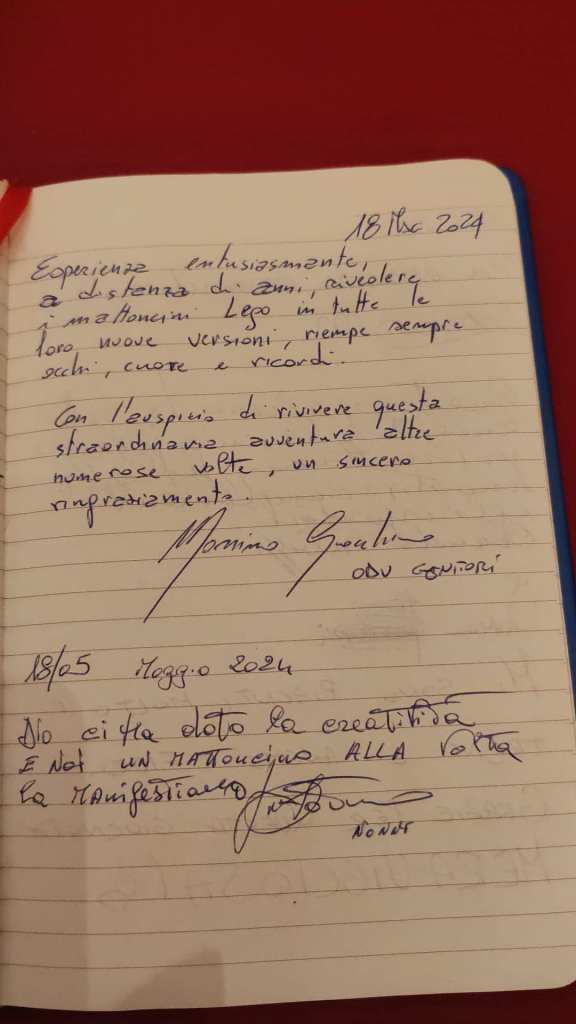 18 Mag 2024
Esperienza entusiasmante,
a distanza di anni, rivedere
i mattoncini Lego in tutte le
loro nuove versioni, riempe sempre
occhi, cuore e ricordi.
Con l'auspicio di rivivere questa
straordinaria avventura altre
numerose volte, un sincero
ringraziamento.
Massimo
ODV GENITORI
18/05 Maggio 2024
Dio ci ha dato la creatività
E NOI UN MATTONCINO ALLA VOLTA
la MANifestiamo
NONNI